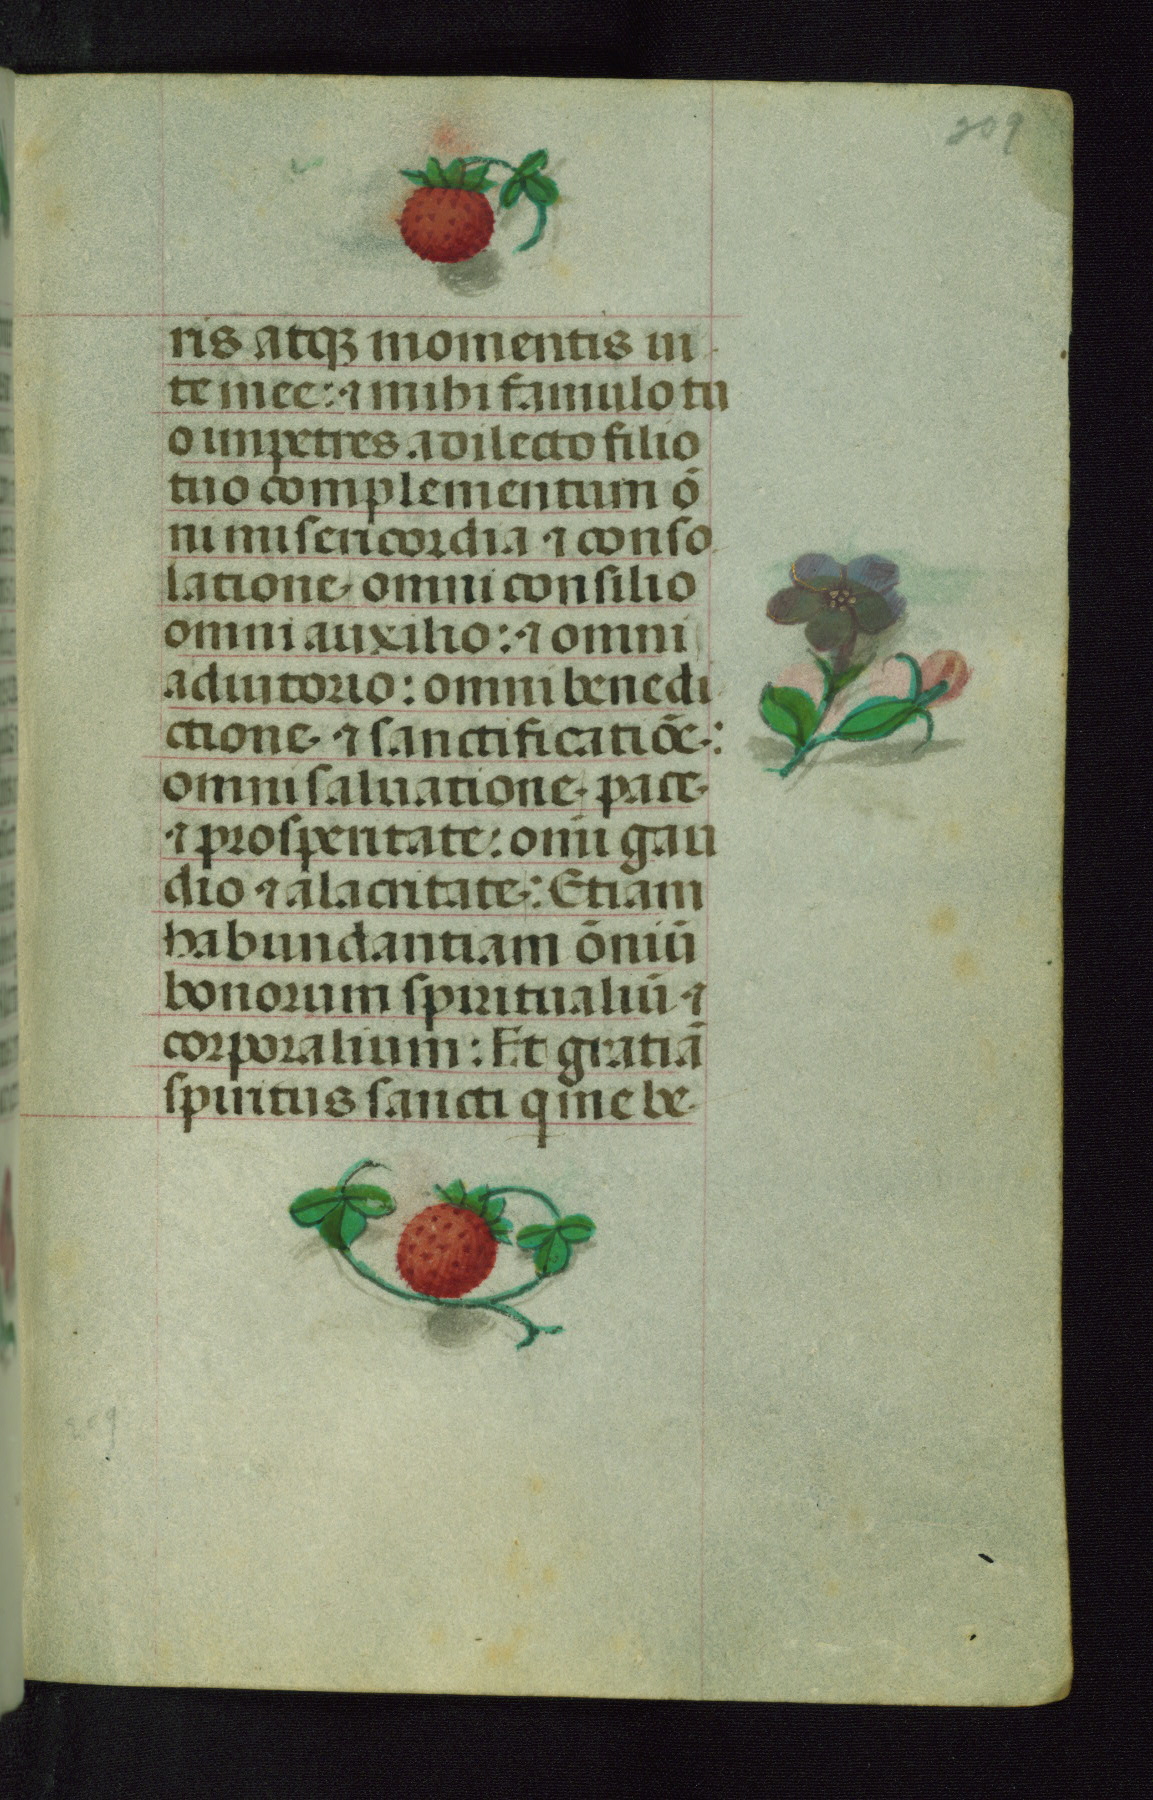 209
ris atqꝫ momentis ui-
te mee: ⁊ mihi famulo tu
o impetres a dilecto filio
tuo complementum õ
ni misericordia ⁊ conso
latione, omni consilio
omni auxilio: ⁊ omni
adiutorio: omni benedi
ctione ⁊ sanctificatiõe:
omni saluatione, pace
⁊ prosperitate: om̄i gau
dio ⁊ alacritate: Etiam
habundantiam õniũ
bonorum spiritualiũ ⁊
corporalium: Et gratiã
spiritus sancti q me be
209